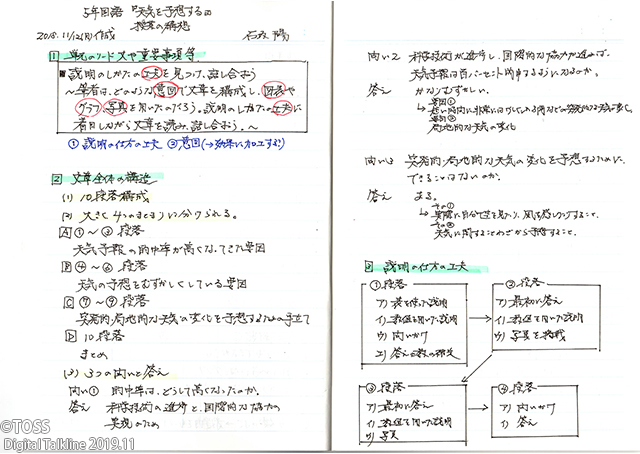 5年国語 『天気を予想する』
授業の構想
2018.11/12(月)作成
1 単元のリード文や重要事項等
■説明のしかたの工夫を見つけ、話し合おう
～筆者は、どのような意図で文章を構成し、図表や
グラフ、写真を用いたのだろう。説明のしかたの工夫に
着目しながら文章を読み、話し合おう。～
①説明の仕方の工夫 ②意図(→効果に加工する?)
2 文章全体の構造
(1) 10段落構成
(2) 大きく4つのまとまりに分けられる。
A ①～③段落
天気予報の的中率が高くなってきた要因
B ④～⑥段落
天気の予想をむずかしくしている要因
C ⑦～⑨段落
突発的・局地的な天気の変化を予想するための手立て
D 10段落
まとめ
(3) 3つの問いと答え
問い① 的中率は、どうして高くなったのか。
答え 科学技術の進歩と、国際的な協力の
実現のため
問い2 科学技術が進歩し、国際的な協力が進めば、
天気予報は百パーセント的中するようになるのか。
答え かなりむずかしい。
要因①
要因②
局地的な天気の変化
問い3 突発的・局地的な天気の変化を予想するために、
できることはないのか。
答え ある。
その①
実際に自分で空を見たり、風を感じたりすること。
その②
天気に関することわざから予想すること。
3 説明の仕方の工夫
①段落
ア) 表を使った説明
イ) 数値を用いた説明
ウ) 問いかけ
②段落
ア) 最初に答え
イ) 数値を用いた説明
ウ) 写真を掲載
③段落
ア) 最初に答え
イ) 数値を用いた説明
ウ) 写真
④段落
ア) 問いかけ
イ) 答え
©TOSS
Digital Talkline 2019.11